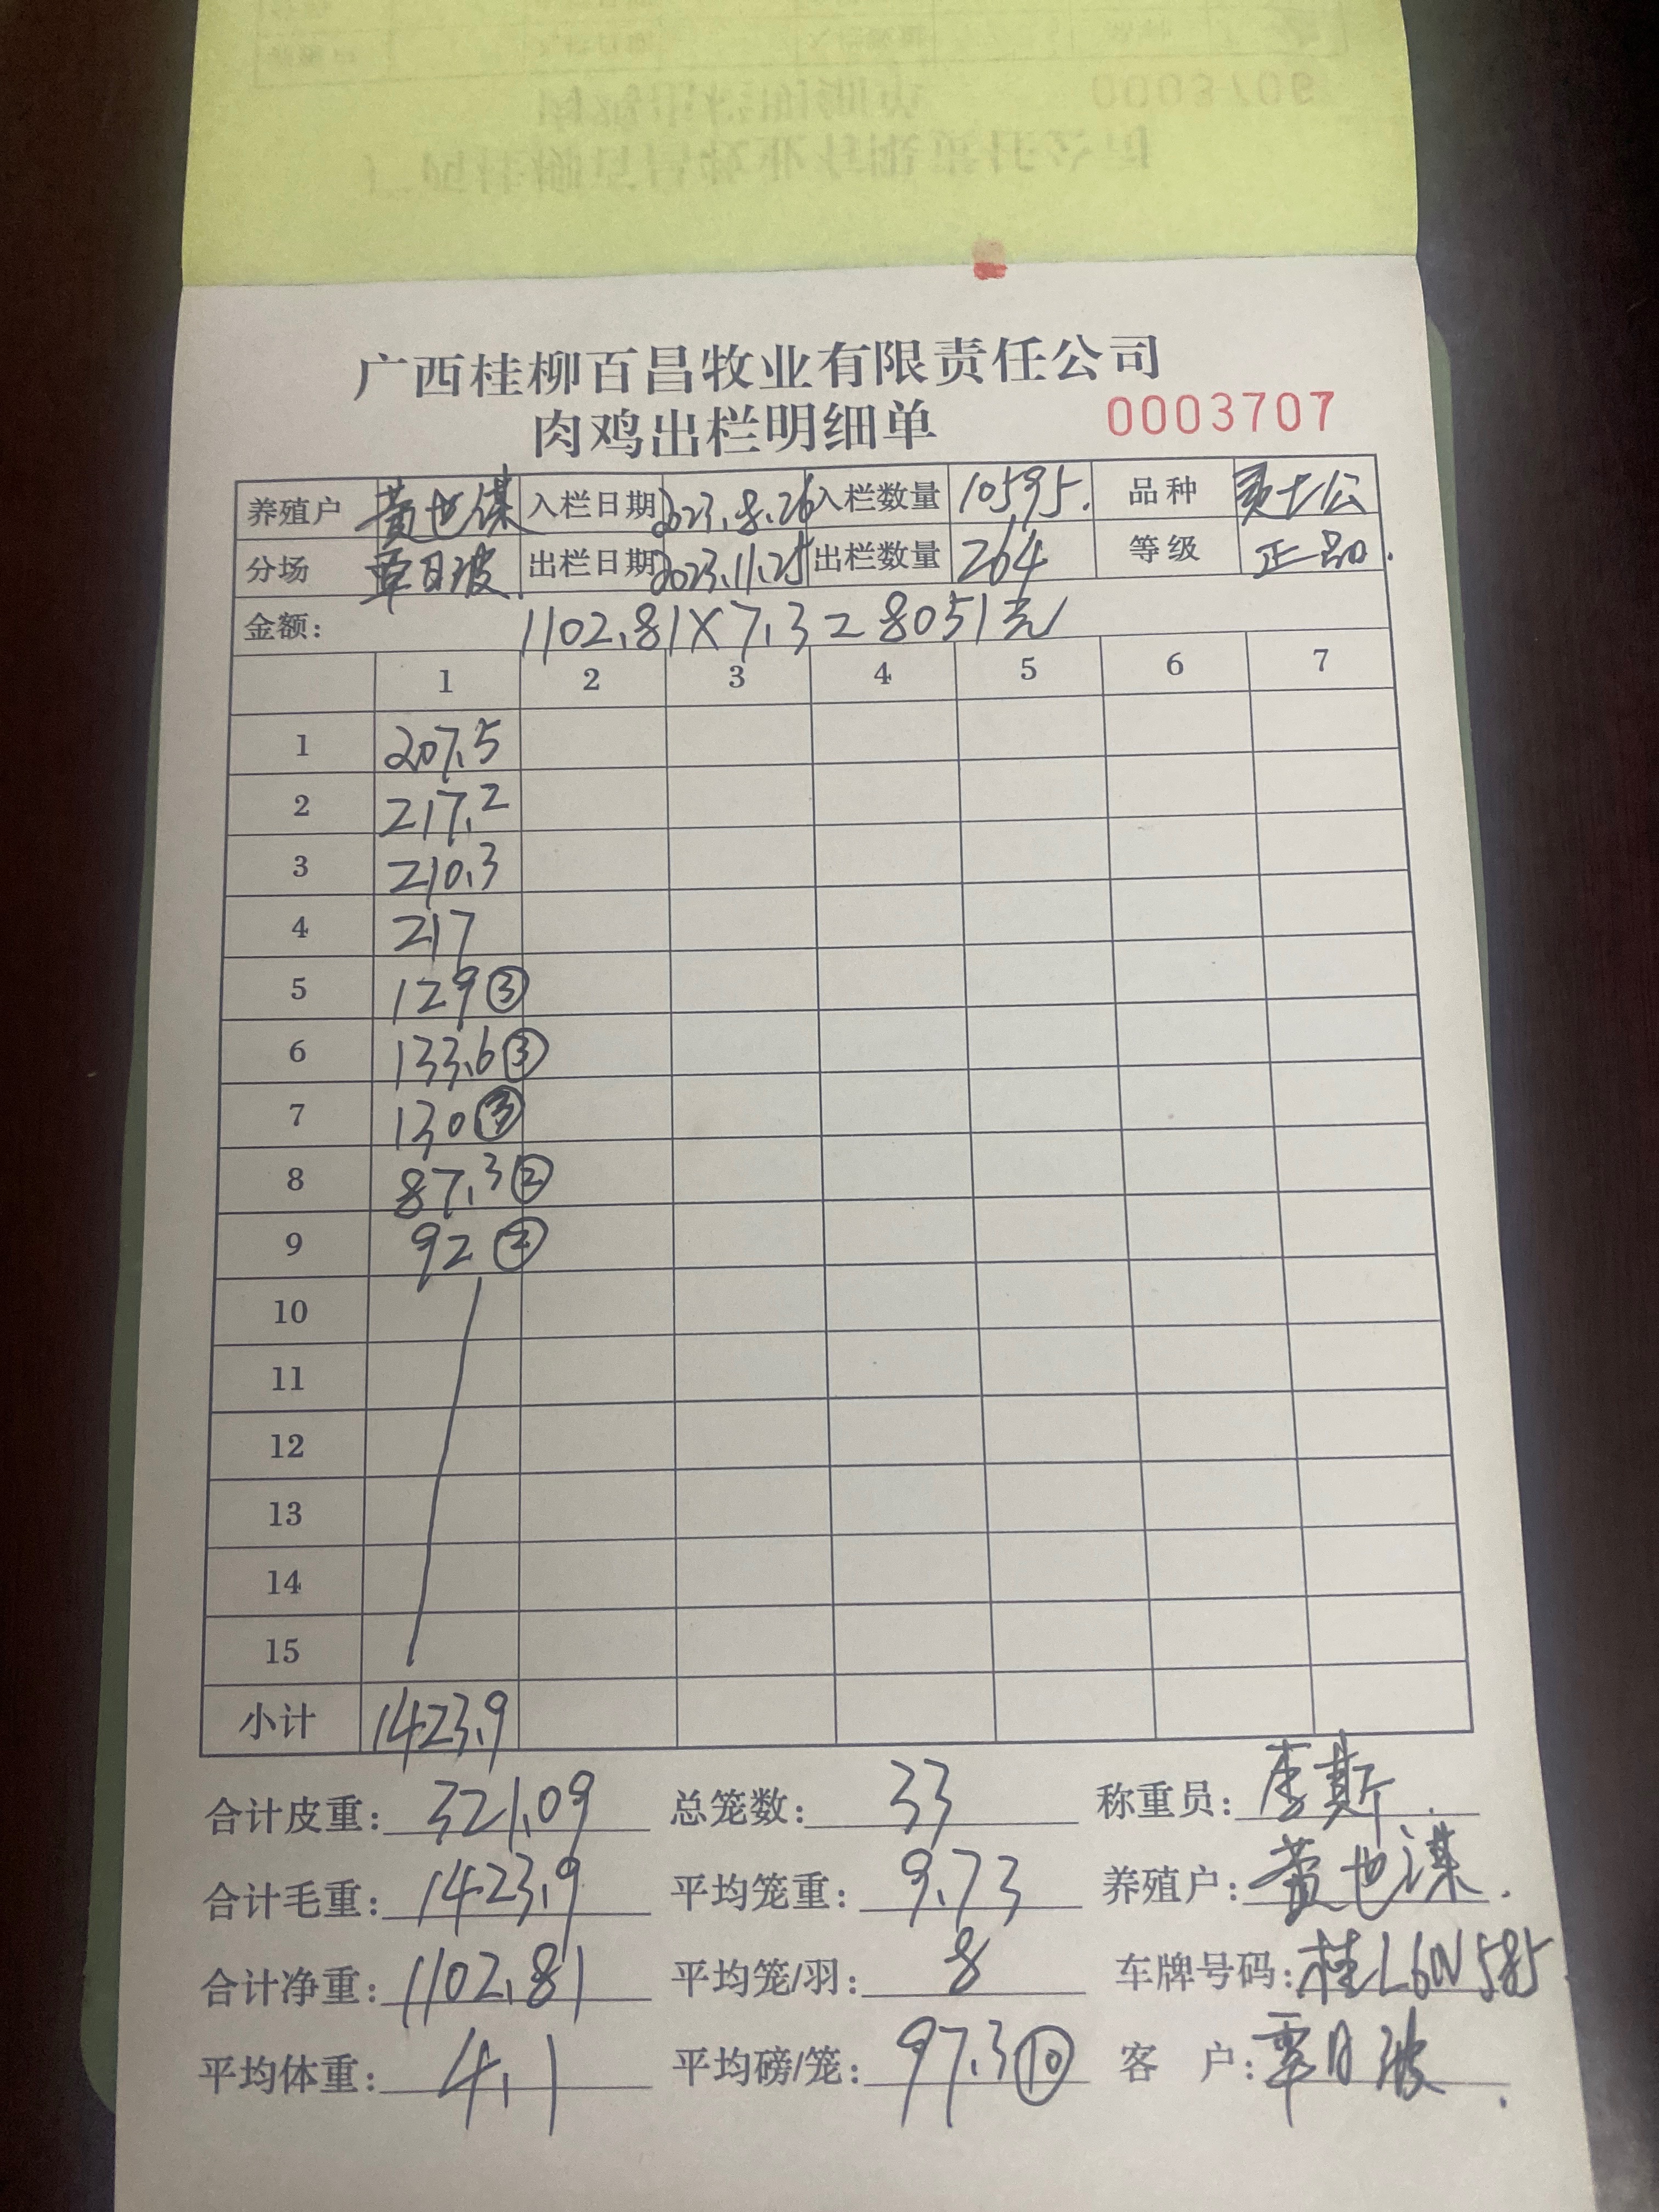 广西桂柳百昌牧业有限责任公司
肉鸡出栏明细单 0003707
养殖户 黄也谋 入栏日期 2023.8.26 入栏数量 10595. 品种
分场 覃日波 出栏日期 2023.11.25 出栏数量 264 等级 正品.
金额: 1102.81×7.3=8051元
1 2 3 4 5 6 7
1 207.5
2 217.2
3 210.3
4 217
5 129③
6 133.6③
7 130③
8 87.3②
9 92②
10
11
12
13
14
15
小计 1423.9
合计皮重: 321.09 总笼数: 33 称重员:
合计毛重: 1423.9 平均笼重: 9.73 养殖户: 黄也谋.
合计净重: 1102.81 平均笼/羽: 8 车牌号码: 桂L6W585
平均体重: 4.1 平均磅/笼: 97.3⑩ 客户: 覃日波.